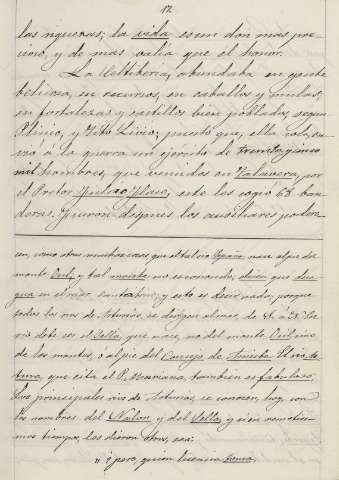 12
las riquezas; la vida es un don mas pre-
cioso, y de mas valia que el honor.
La Celtiberia, abundaba en gente
belicosa, en recursos, en caballos y mulas,
en fortalezas y castillos bien poblados, segun
Plinio, y Tito Livio; puesto que, ella sola, en-
vió á la guerra un ejército de treinta y cinco
mil hombres, que vencidos en Talavera, por
el Pretor Fulvio Flaco, este les cogió 68 ban-
deras. Fueron despues los auxiliares podero-
con, como otras muchas cosas que atribuio España, nace al pie del
monte Ovil, y tal monte, no es conocido, dicen que desa-
gua en el mar cantabrico; y esto es decir nada; porque
todos los rios de Asturias, se dirijen al mar, de S. a N. Se-
rio debe ser el Sella, que nace, no del monte Ovil, sino
de los montes, o al pie del Concejo de Amieba. El rio As-
tura, que cita el P. Mariana, tambien es fabuloso;
Los principales rios de Asturias, se conocen, hoy, con
los nombres del Nalon, y del Sella, y si en remotisi-
mos tiempos, les dieron otros, sea:
" ¿pero, quien licencia